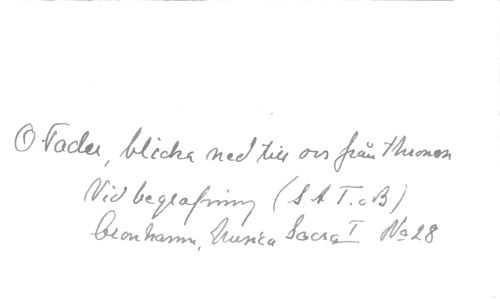 O Fader, blicka ned till oss från thronen
Vid begrafning (S A T. o B)
Cronhamn, Musica Sacra I No 28